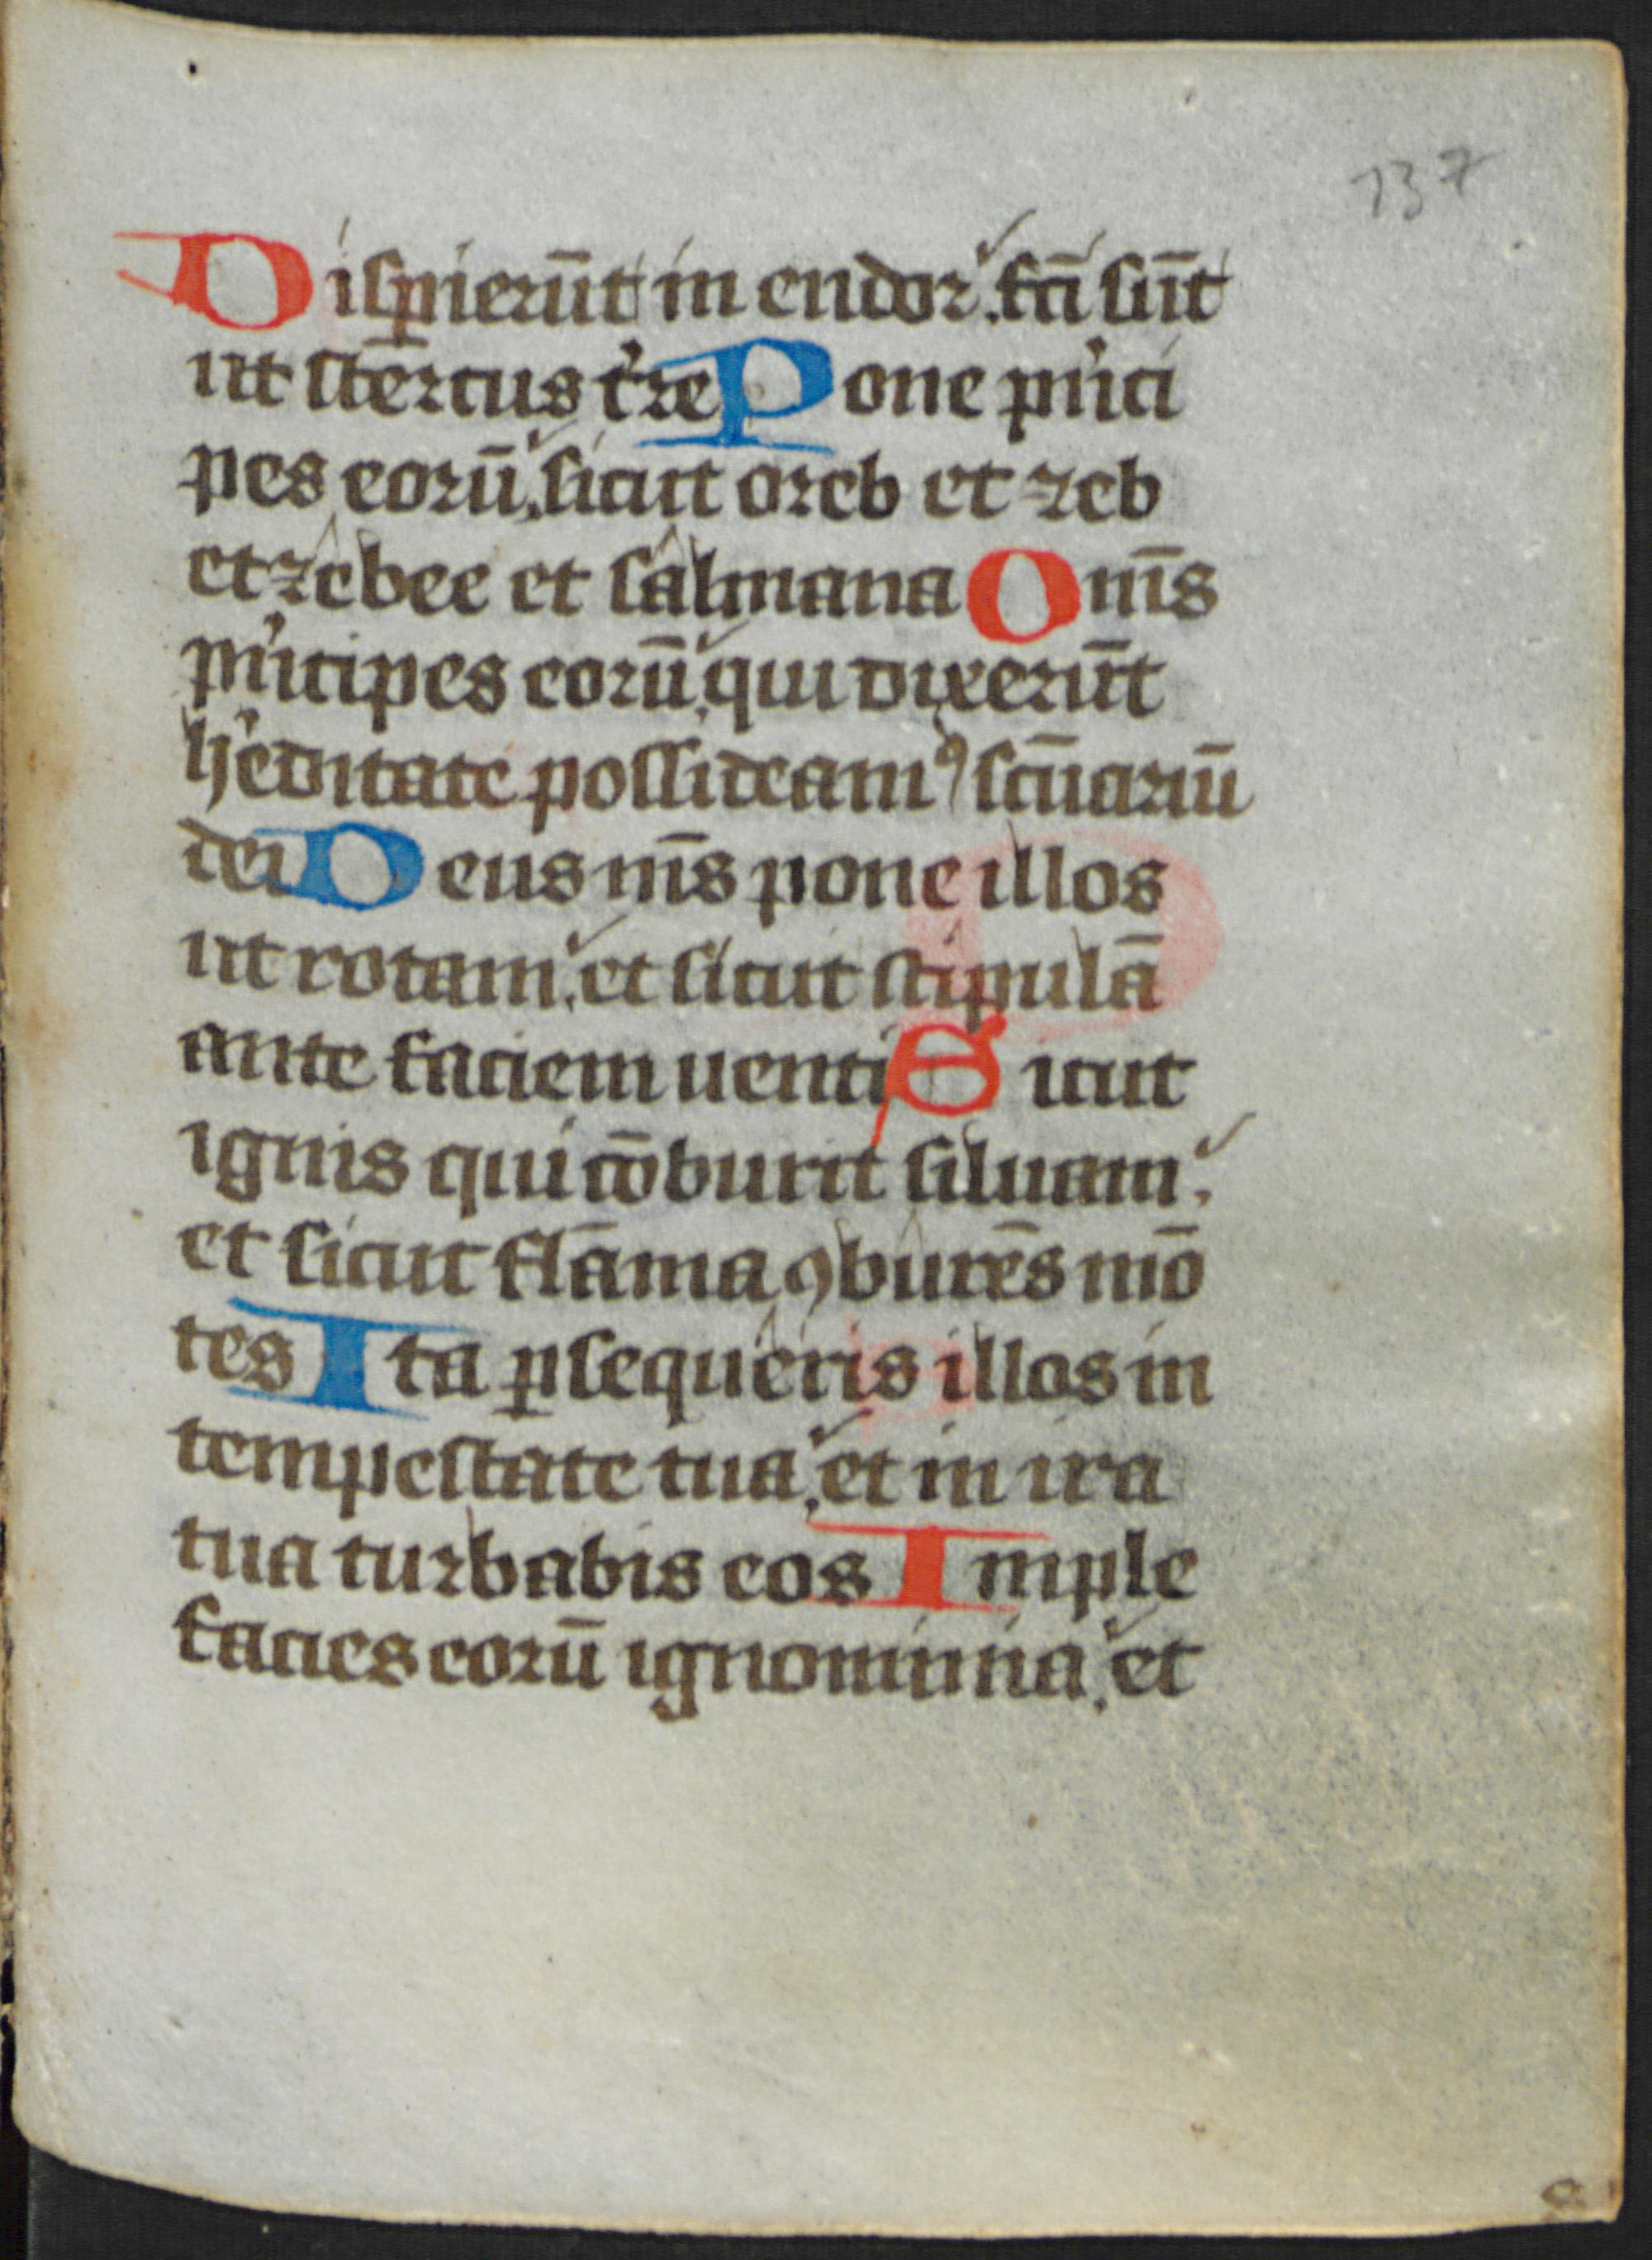 137
Disꝑierūt in endor. fc̄i sūt
ut stercus t're Pone p'nci
pes eorū. sicut oreb et zeb
et zebee et salmana Om̄s
p'ncipes eorū. qui dixerūt
h'editate possideamꝰ sc̄uariū
dei Deus m̄s pone illos
ut rotam. et sicut stipulā
ante faciem uenti Sicut
ignis qui cōburit siluam.
et sicut flāma ꝯburēs mō
tes Ita ꝑsequeris illos in
tempestate tua. et in ira
tua turbabis eos Imple
facies eorū ignominia. et